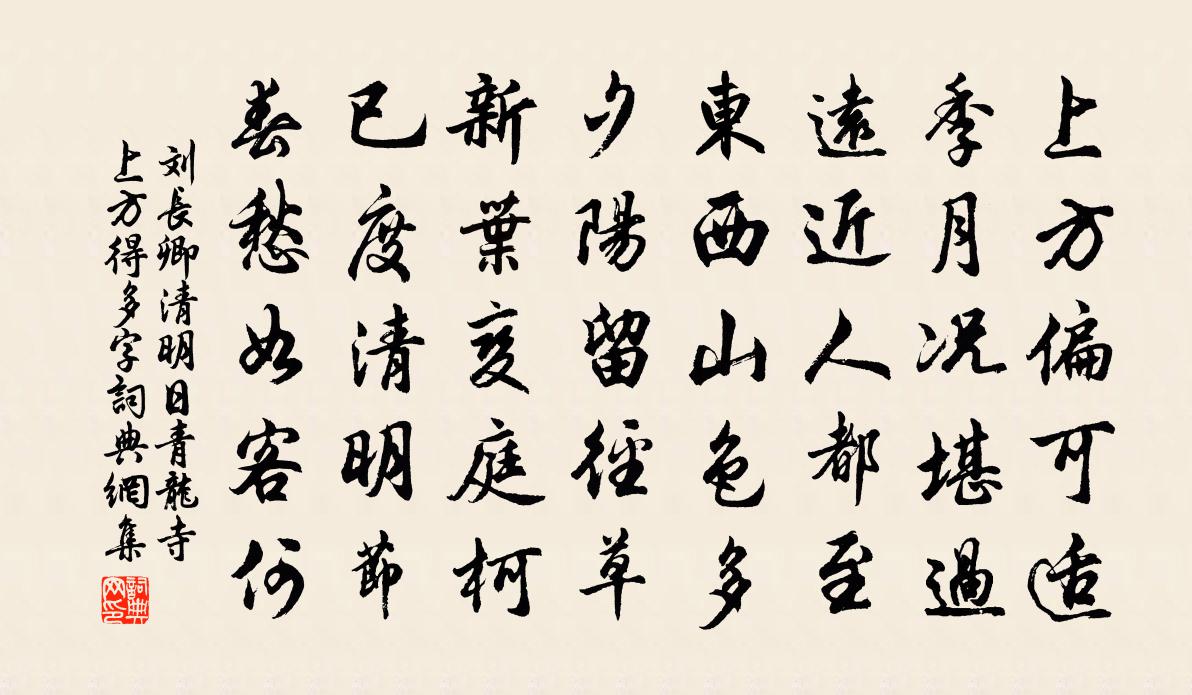 上方偏可适
季月况堪過
遠近人都至
東西山色多
夕陽留徑草
新葉變庭柯
已度清明節
春愁如客何
刘長卿清明日青龍寺
上方得多字詞典網集
詞典网印